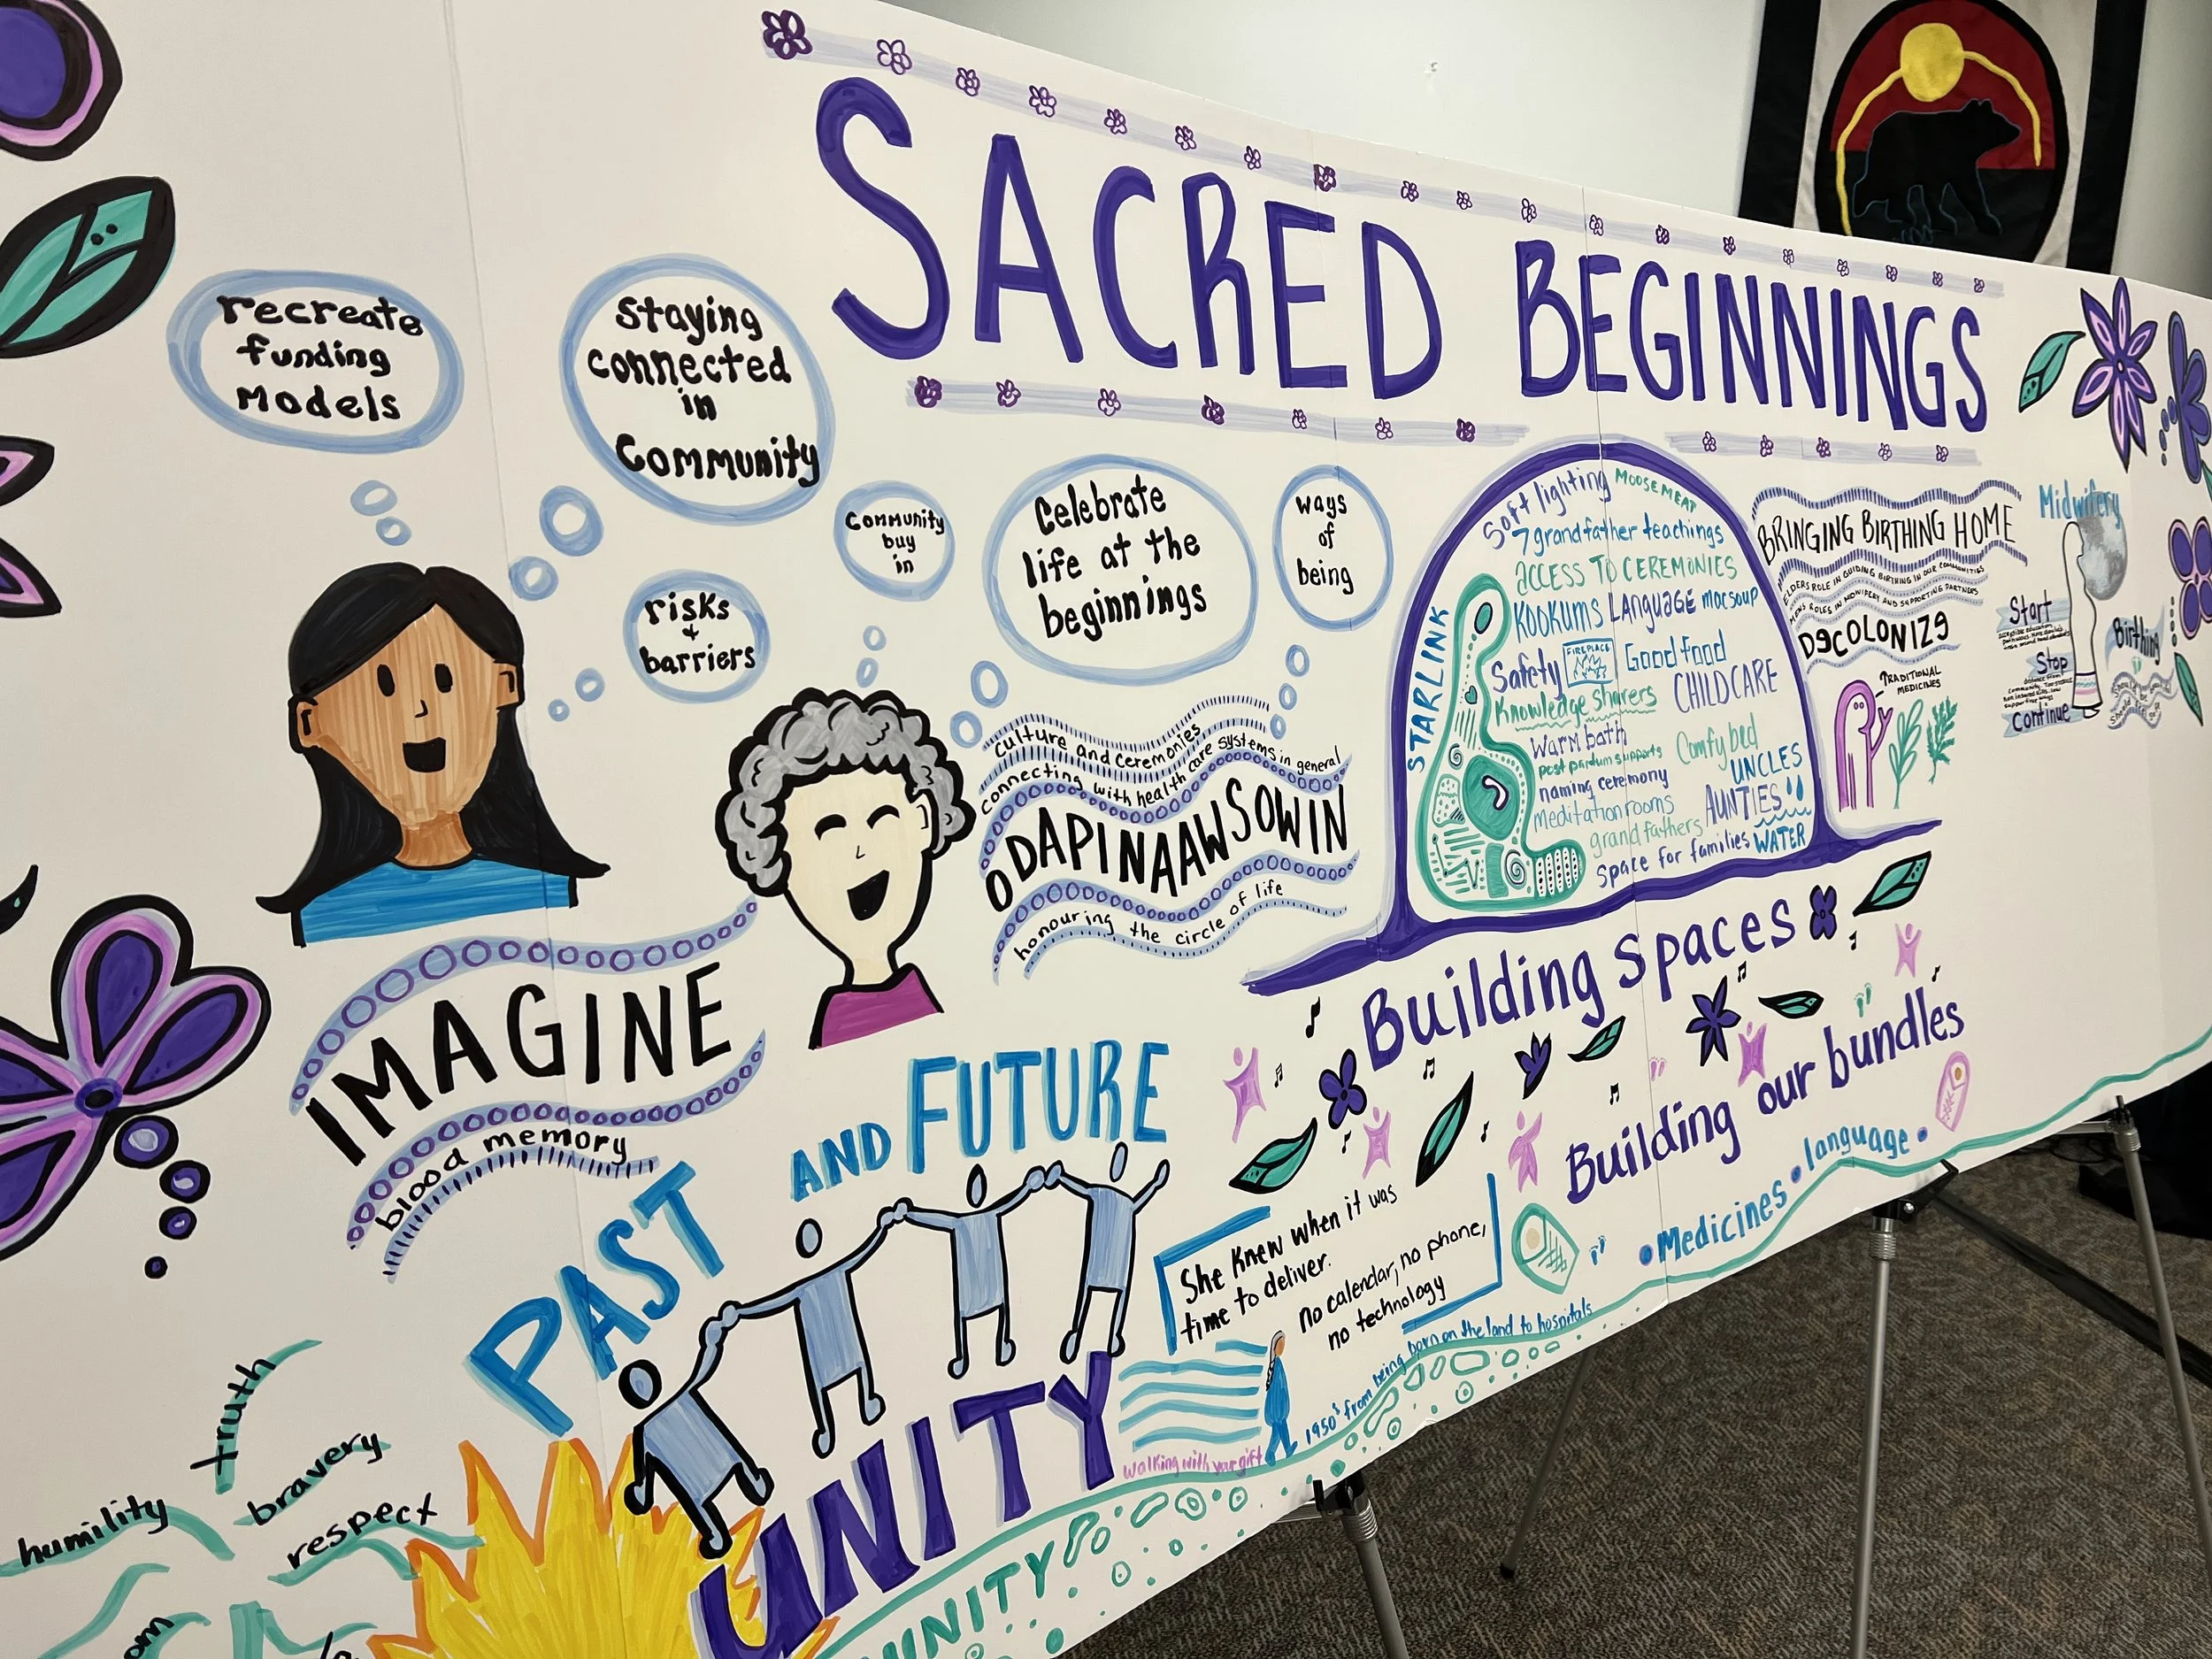 SACRED BEGINNINGS
recreate
funding
models
staying
connected
in
Community
risks
+
barriers
Community
buy
in
Celebrate
life at the
beginnings
ways
of
being
culture and ceremonies
connecting with health care systems in general
ODAPINAAWSOWIN
honouring the circle of life
IMAGINE
blood memory
PAST AND FUTURE
UNITY
truth
bravery
humility
respect
UNITY
STARLINK
Soft lighting
MOOSE MEAT
7 grandfather teachings
ACCESS TO CEREMONIES
KOOKUMS LANGUAGE macsoup
Safety
FIREPLACE
Good food
Knowledge sharers
CHILDCARE
Warm bath
post partum supports
Comfy bed
naming ceremony
UNCLES
meditation rooms
AUNTIES
grandfathers
space for families
WATER
Building spaces
Building our bundles
• Medicines • language •
She knew when it was
time to deliver.
no calendar, no phone,
no technology
walking with your gift
1950's from being born on the land to hospitals
BRINGING BIRTHING HOME
ELDERS ROLE IN GUIDING BIRTHING IN OUR COMMUNITIES
MEN'S ROLES IN MIDWIFERY AND SUPPORTING PARTNERS
DECOLONIZE
TRADITIONAL
MEDICINES
Midwifery
Start
Stop
Continue
Birthing